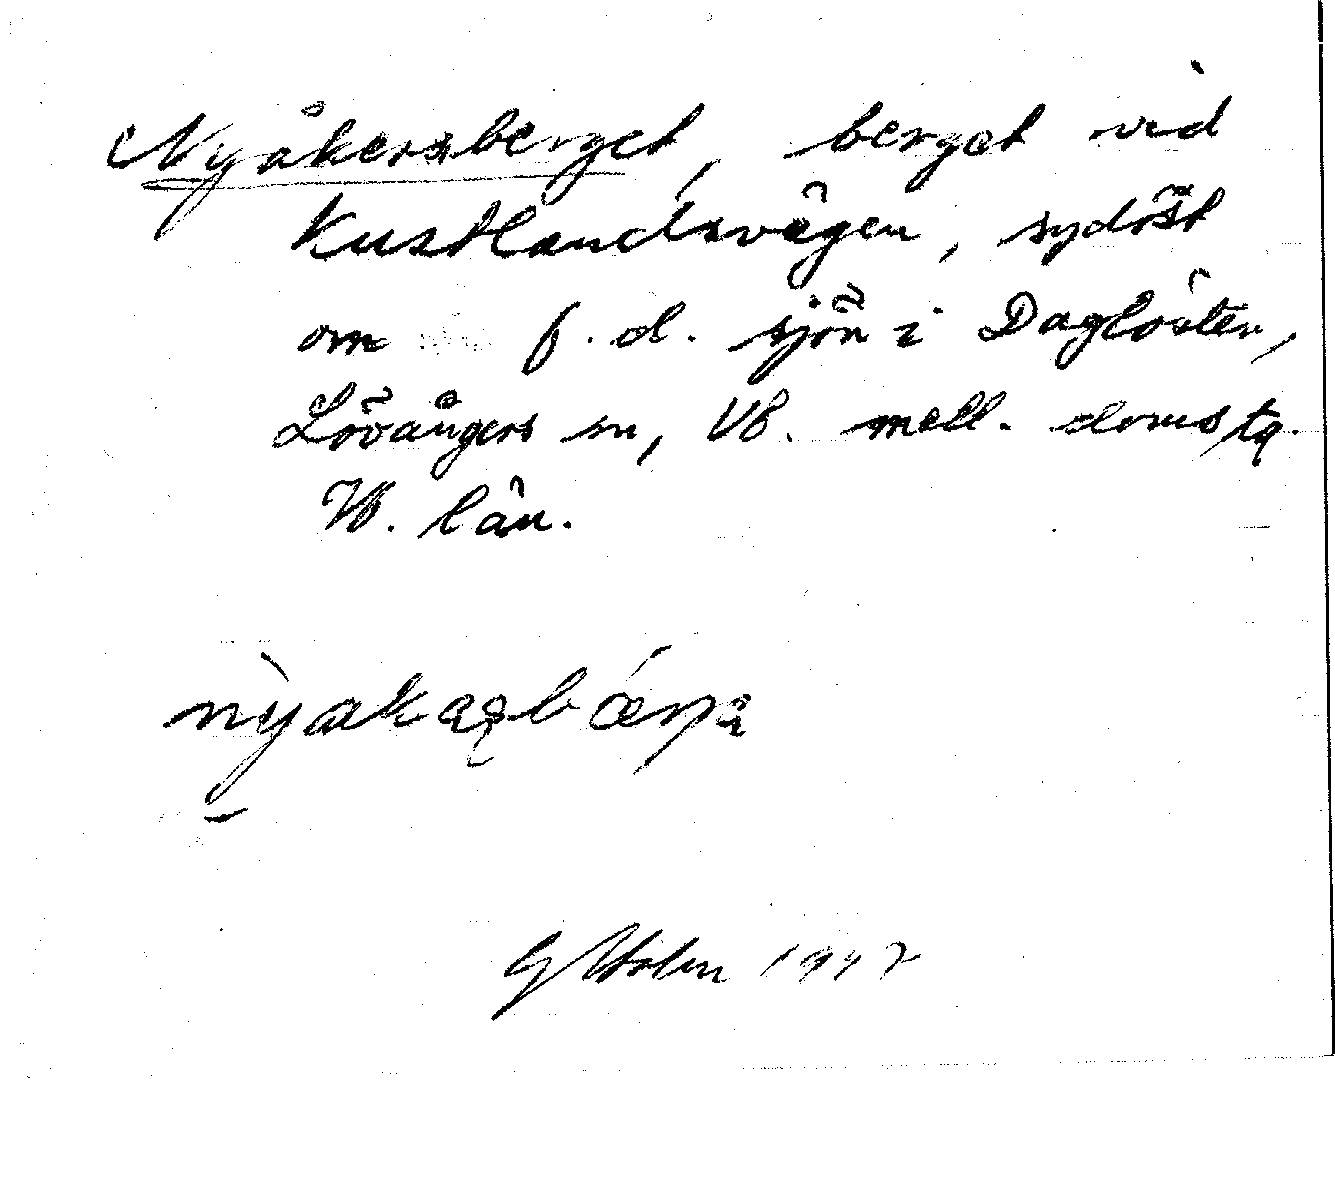 Nyåkersberget, berget vid
Kustlandsvägen, sydöst
om f.d. sjön i Daglösten,
Lövångers sn, Vb. mell. domstg.
Vb. län.
G Holm 1947